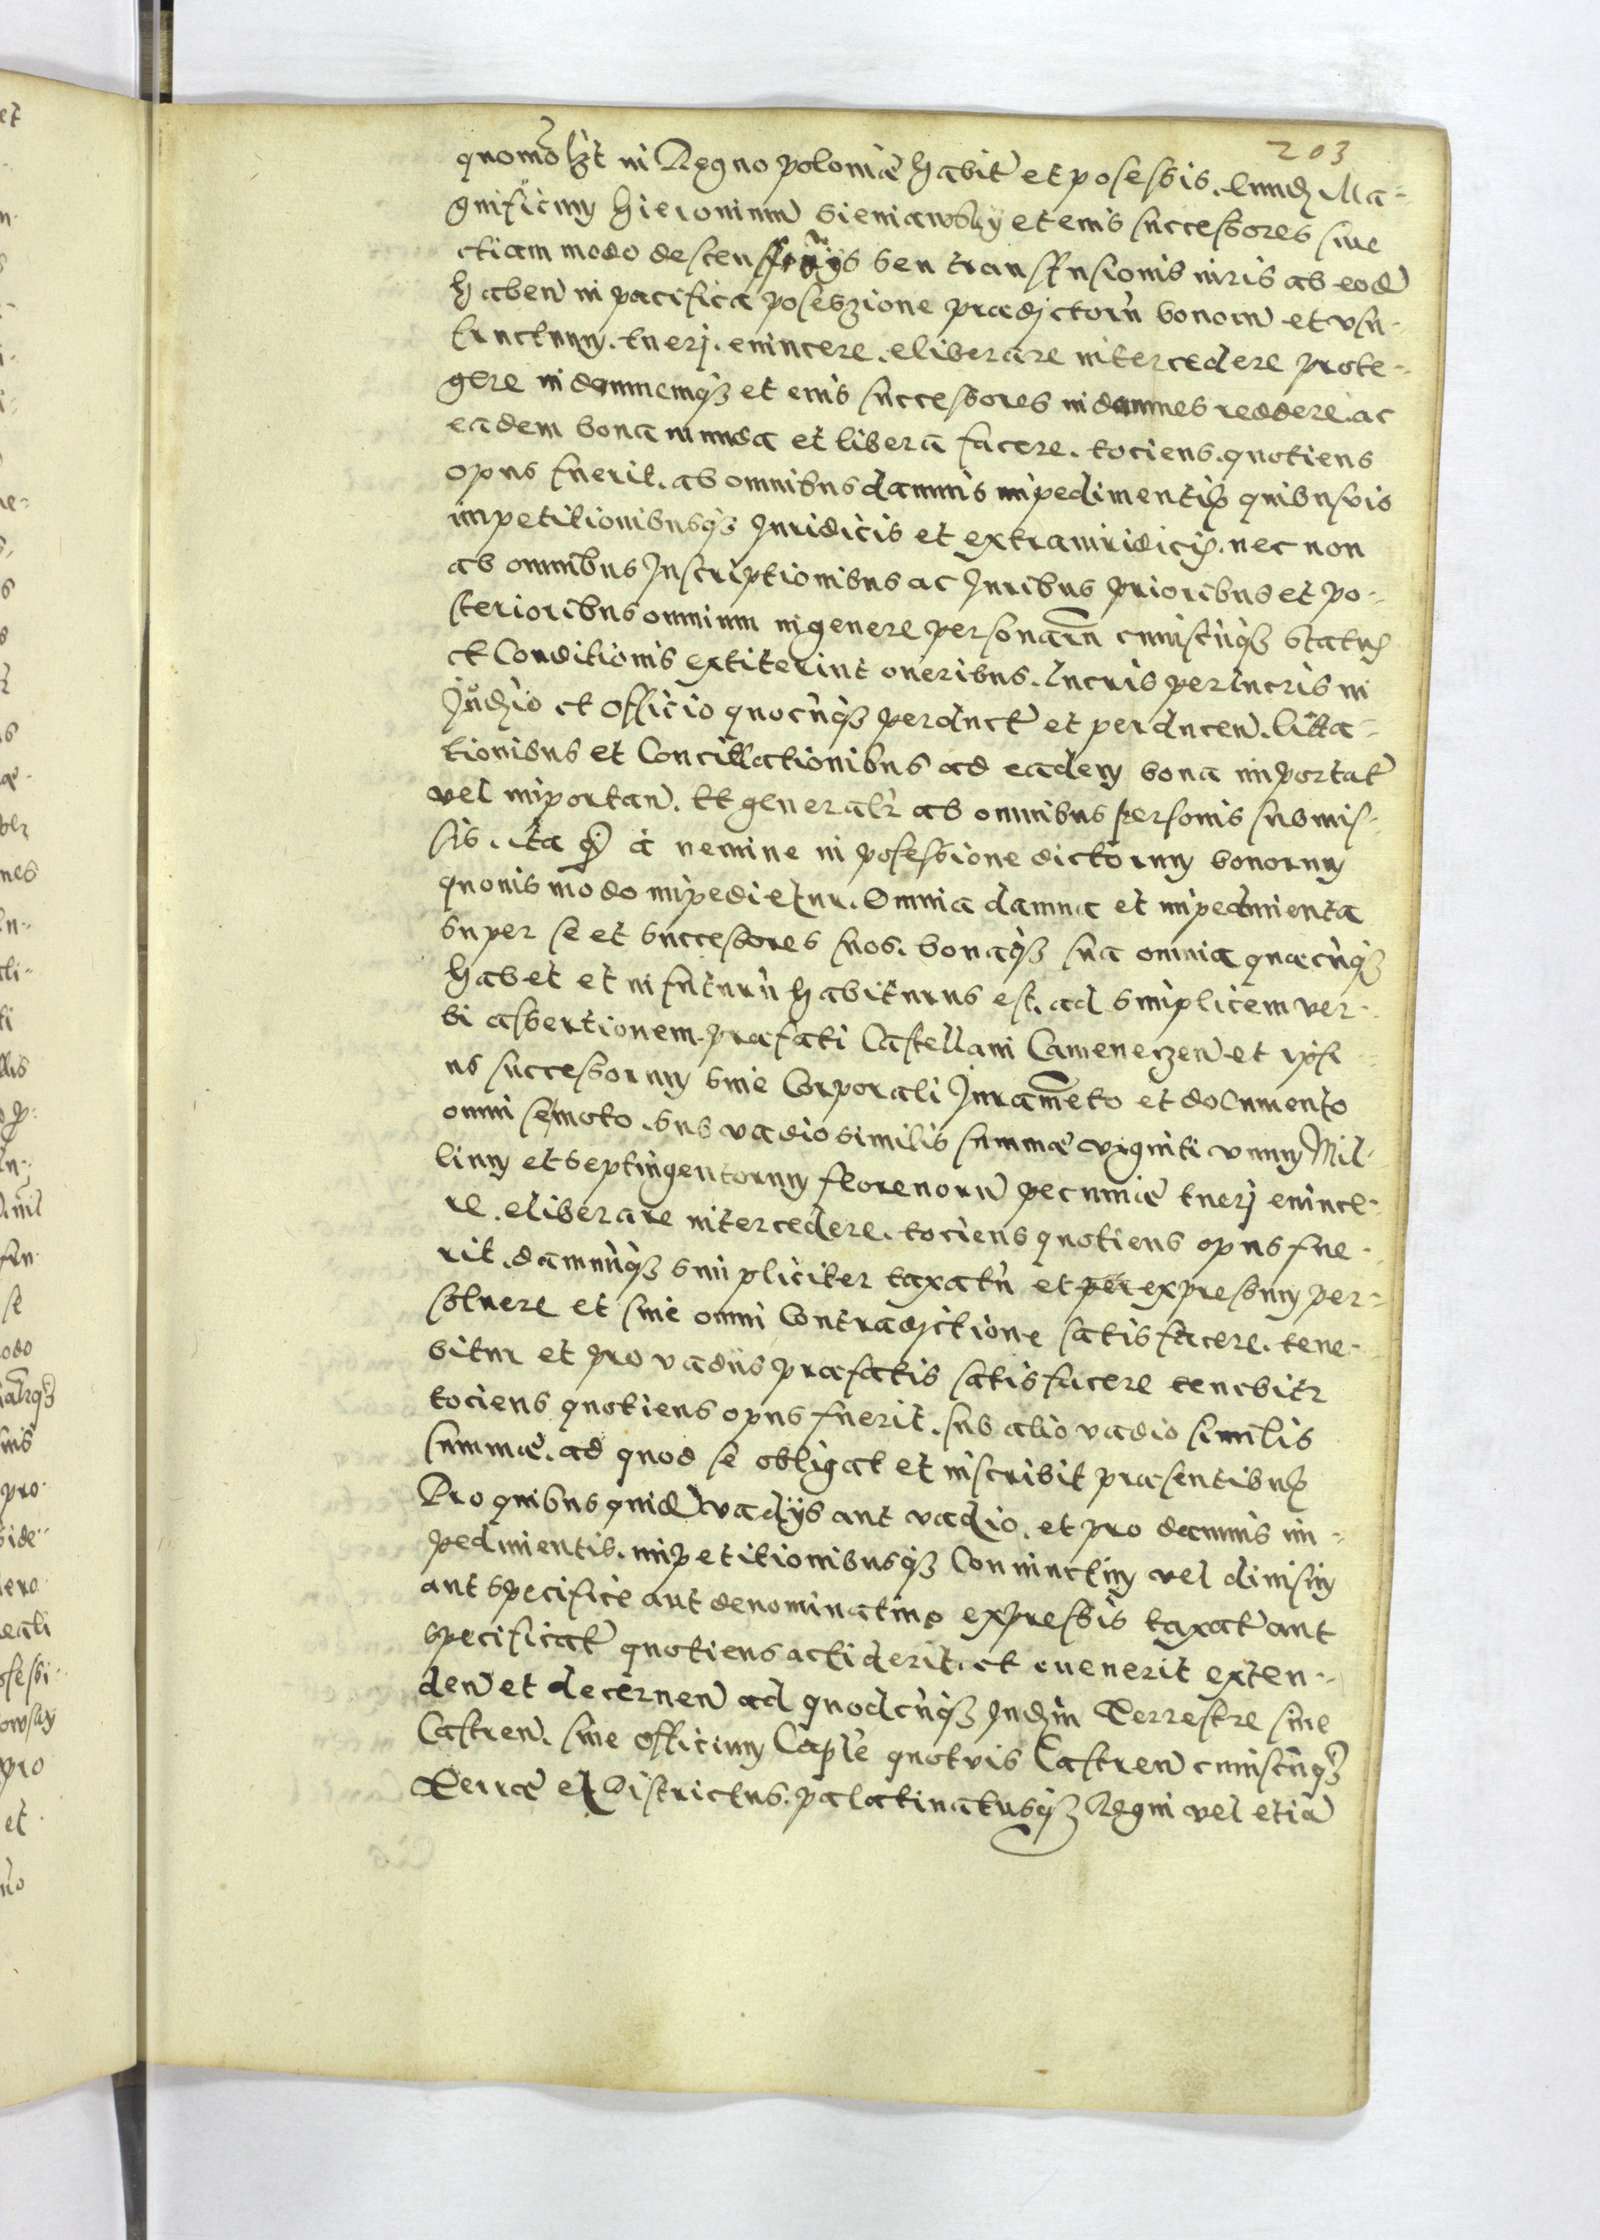 203
quomodolibet in Regno poloniæ habit et posessis. Eund Ma-
gnificum Hieronimu Sieniawsky et eius successores siue
etiam modo descen seu transfusionis iuris ab eod
haben in pacifica posessione prædictoru bonoru et vsu-
fructuum. tueri. euincere. eliberare intercedere prote-
gere indemnemq3 et eius successores indemnes reddere. ac
eadem bona munda et libera facere. tociens. quotiens
opus fuerit. ab omnibus damnis impedimentis quibusuis
impetitionibusq3 Juridicis et extraiuridicis. nec non
ab omnibus Inscriptionibus ac Juribus prioribus et po-
sterioribus omnium in genere personaru cuiuscuq3 status
et Conditionis extiterint oneribus. lucris perlucris in
Judicio et Officio quocuq3 perduct et perducen. litta-
tionibus et Concittationibus ad eadem bona importat
vel importan. Et generalr ab omnibus personis submis-
sis. ita q à nemine in posessione dictorum bonorum
quouis modo impedietur. Omnia damna et impedimenta
super se et successores suos. bonaq3 sua omnia quæcuq3
habet et in futuru habiturus est. ad simplicem ver-
bi assertionem præfati Castellani Camenecen et ipsi-
us successorum sine Corporali Juramento et documento
omni semoto. sub vadio similis summæ viginti vnum Mil-
lium et septingentorum florenoru pecuniæ tueri euince-
re. eliberare intercedere. tociens quotiens opus fue-
rit. damnuq3 simpliciter taxatu et per expressum per-
soluere et sine omni Contradictione satisfacere. tene-
bitur et pro vadiis præfatis satisfacere tenebitr
tociens quotiens opus fuerit. sub alio vadio similis
summæ. ad quod se obligat et inscribit præsentibus
Pro quibus quid vadijs aut vadio. et pro damnis im-
pedimentis. impetitionibusq3 Coniunctim vel diuisim
aut specifice aut denominatim expressis taxat aut
specificat quotiens acciderit. et euenerit exten-
den et decernen ad quodcuq3 Judiciu Terrestre siue
Castren. siue Officium Caple quotuis Castren cuiuscuq3
Terræ et Districtus. palatinatusq3 Regni vel etia